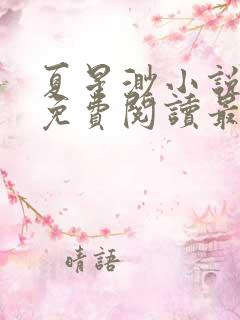 夏星渺小說
免費閱讀最
晴語